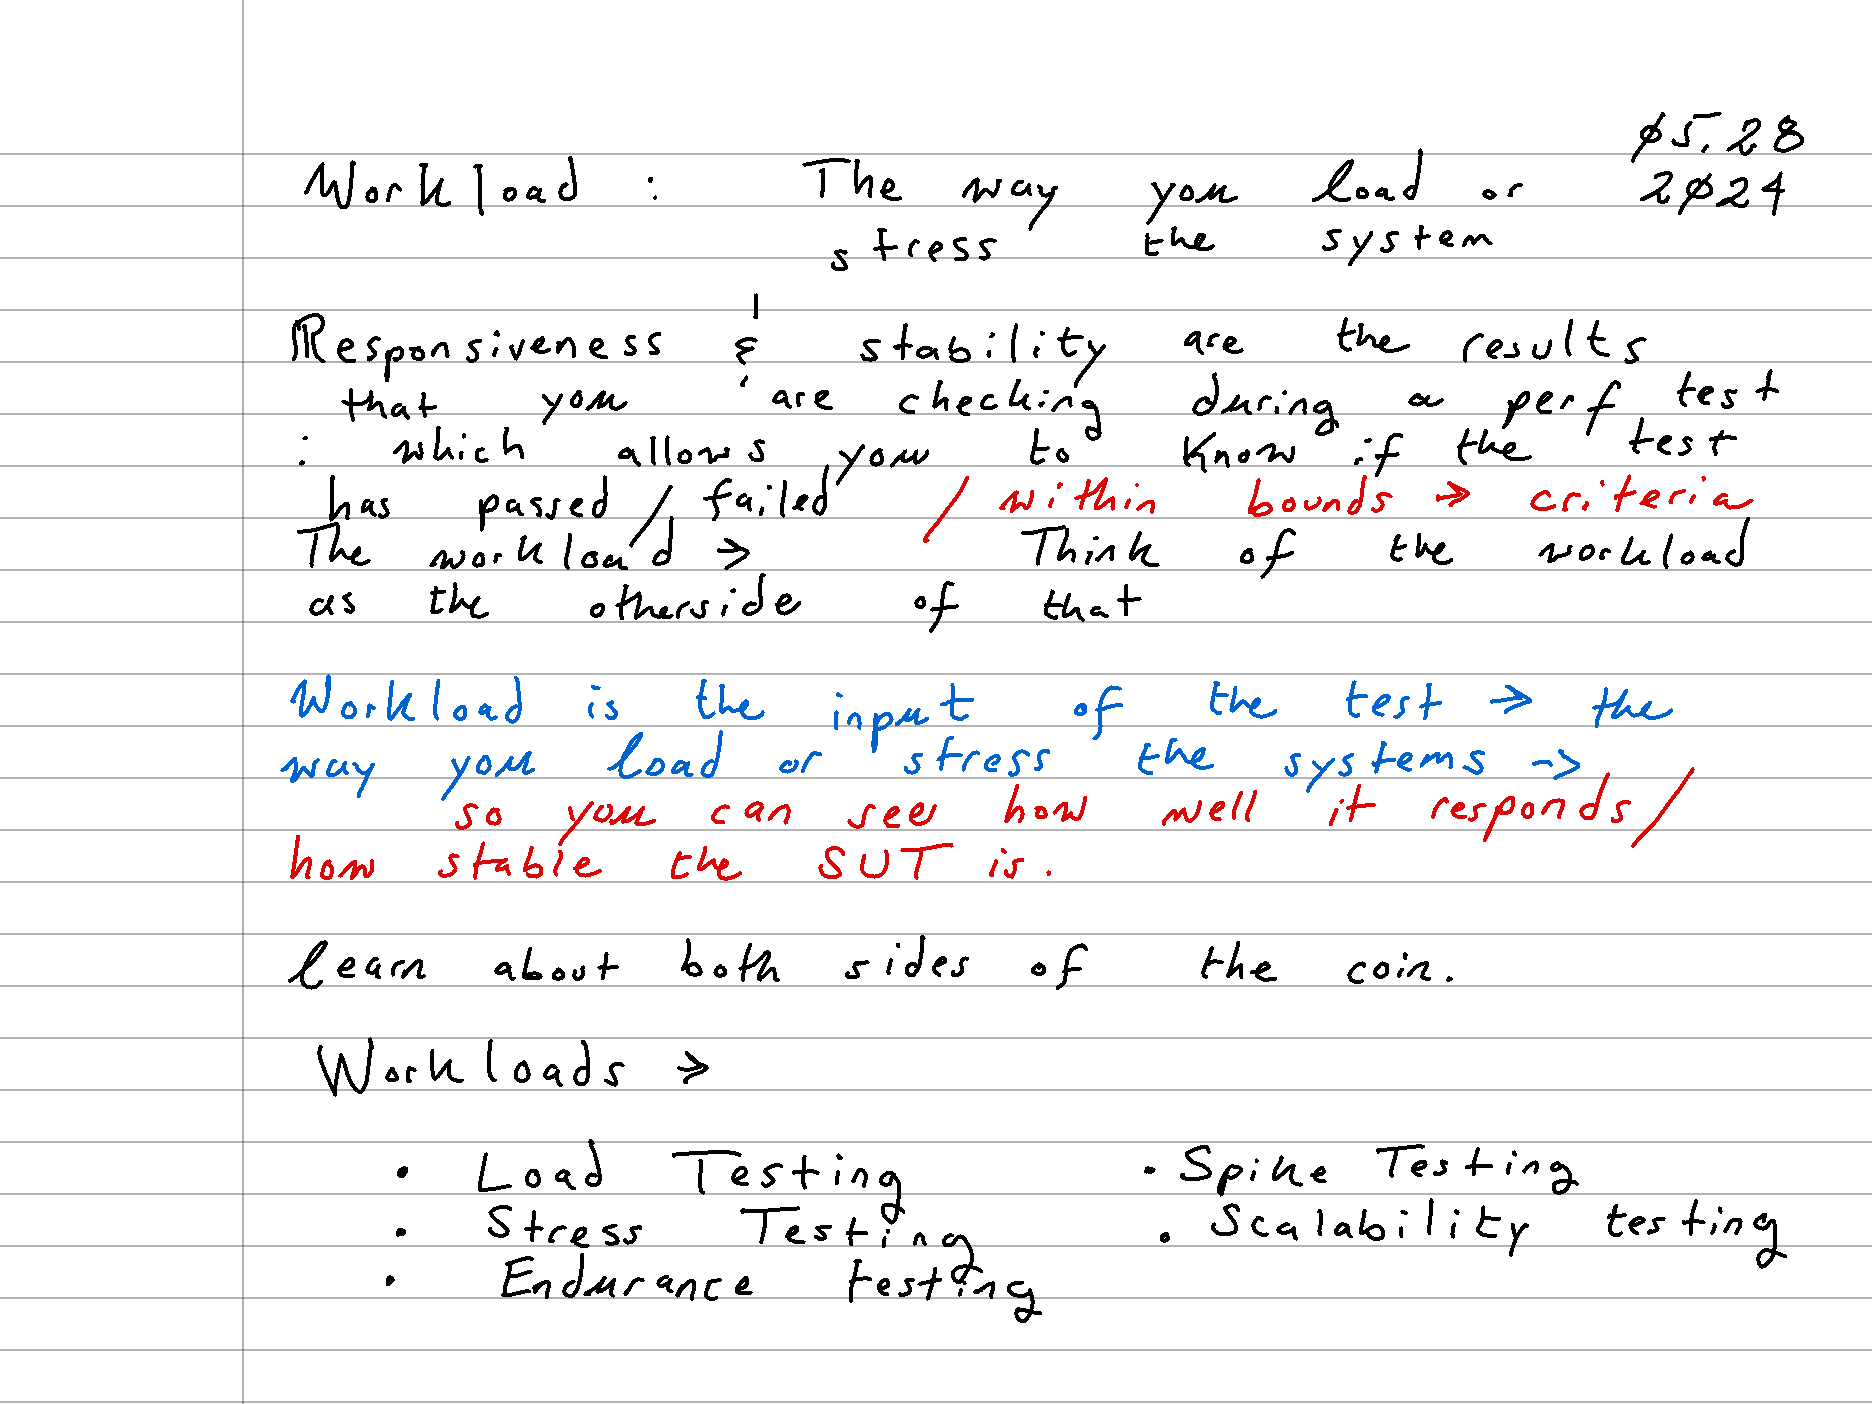 05.28
Workload : The way you load or 2024
stress the system
Responsiveness & stability are the results
that you are checking during a perf test
: which allows you to know if the test
has passed / failed / within bounds → criteria
The workload → Think of the workload
as the otherside of that
Workload is the input of the test → the
way you load or stress the systems ->
so you can see how well it responds /
how stable the SUT is.
learn about both sides of the coin.
Workloads →
• Load Testing • Spike Testing
• Stress Testing • Scalability testing
• Endurance testing